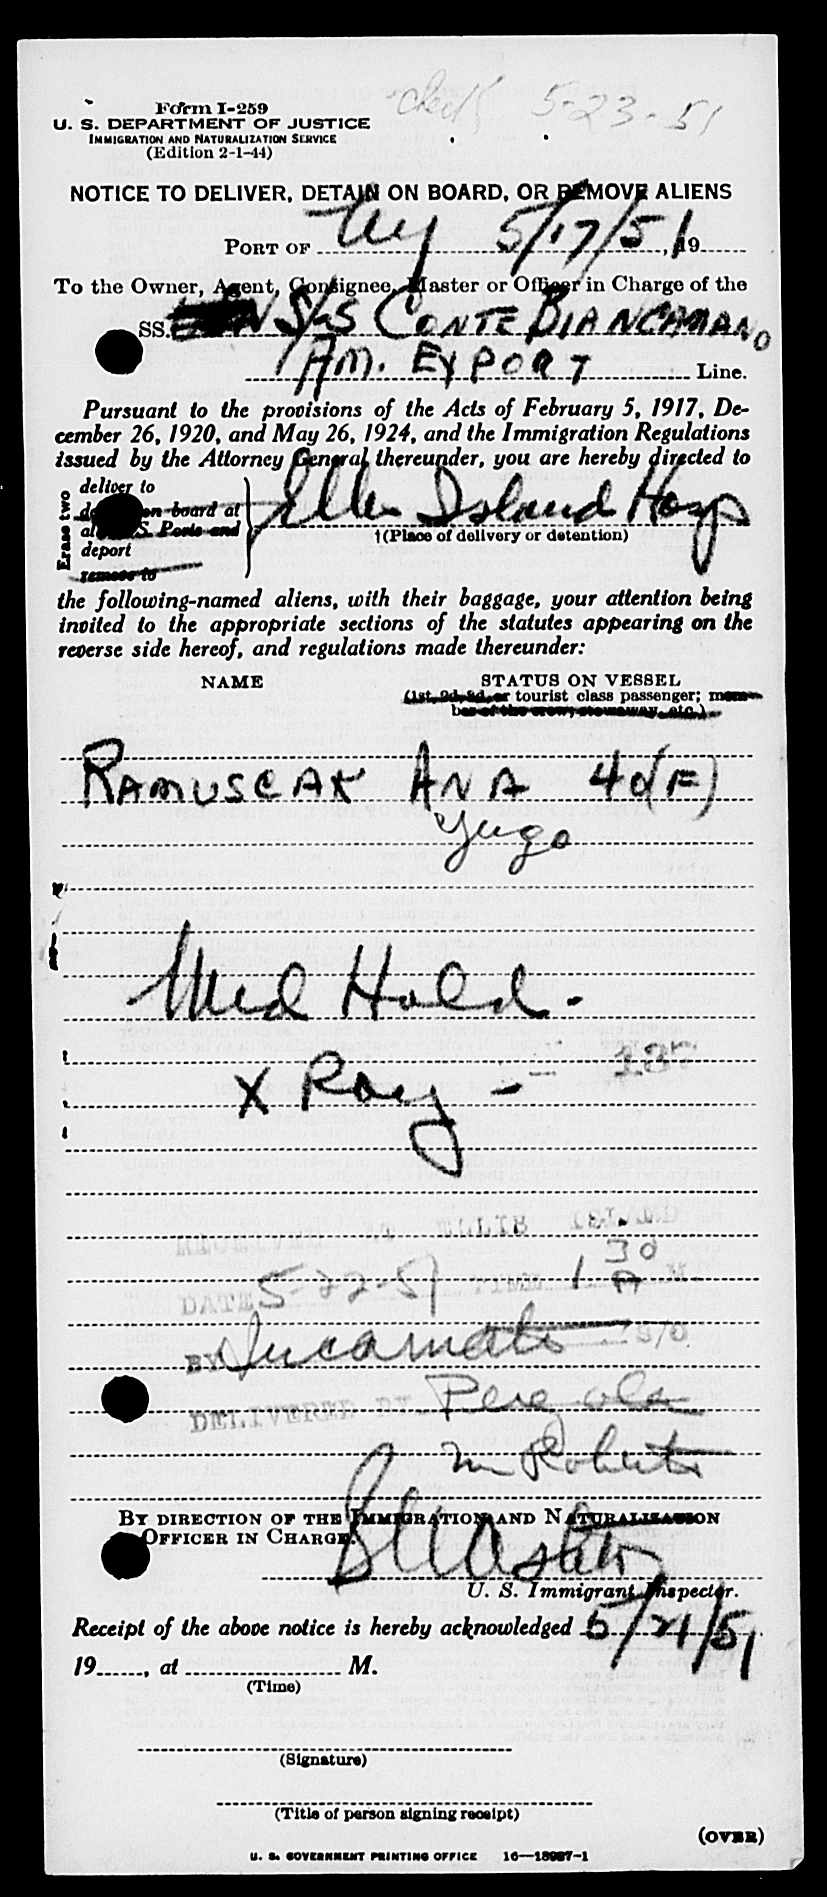 check 5-23-51
Form I-259
U. S. DEPARTMENT OF JUSTICE
IMMIGRATION AND NATURALIZATION SERVICE
(Edition 2-1-44)
NOTICE TO DELIVER, DETAIN ON BOARD, OR REMOVE ALIENS
PORT OF NY 5/17/51, 19
To the Owner, Agent, Consignee, Master or Officer in Charge of the
SS. S/S CONTE BIANCAMANO
AM. EXPORT Line.
Pursuant to the provisions of the Acts of February 5, 1917, De-
cember 26, 1920, and May 26, 1924, and the Immigration Regulations
issued by the Attorney General thereunder, you are hereby directed to
Erase two
deliver to
on board at
S. Ports and
deport
remove to
Ellis Island Hosp
†(Place of delivery or detention)
the following-named aliens, with their baggage, your attention being
invited to the appropriate sections of the statutes appearing on the
reverse side hereof, and regulations made thereunder:
NAME STATUS ON VESSEL
(1st, 2d, 3d, or tourist class passenger; mem-
ber of the crew, stowaway, etc.)
RAMUSCAK ANA 40(F)
Yugo
Med Hold.
X Ray - 137
RECEIVED AT ELLIS ISLAND
DATE 5-22-51 TIME 1 30 A M.
BY Incarnato S/O
DELIVERED BY
M Roberts
BY DIRECTION OF THE IMMIGRATION AND NATURALIZATION
OFFICER IN CHARGE.
U. S. Immigrant Inspector.
Receipt of the above notice is hereby acknowledged 5/21/51
19, at M.
(Time)
(Signature)
(Title of person signing receipt)
(OVER)
U. S. GOVERNMENT PRINTING OFFICE 16—18987-1